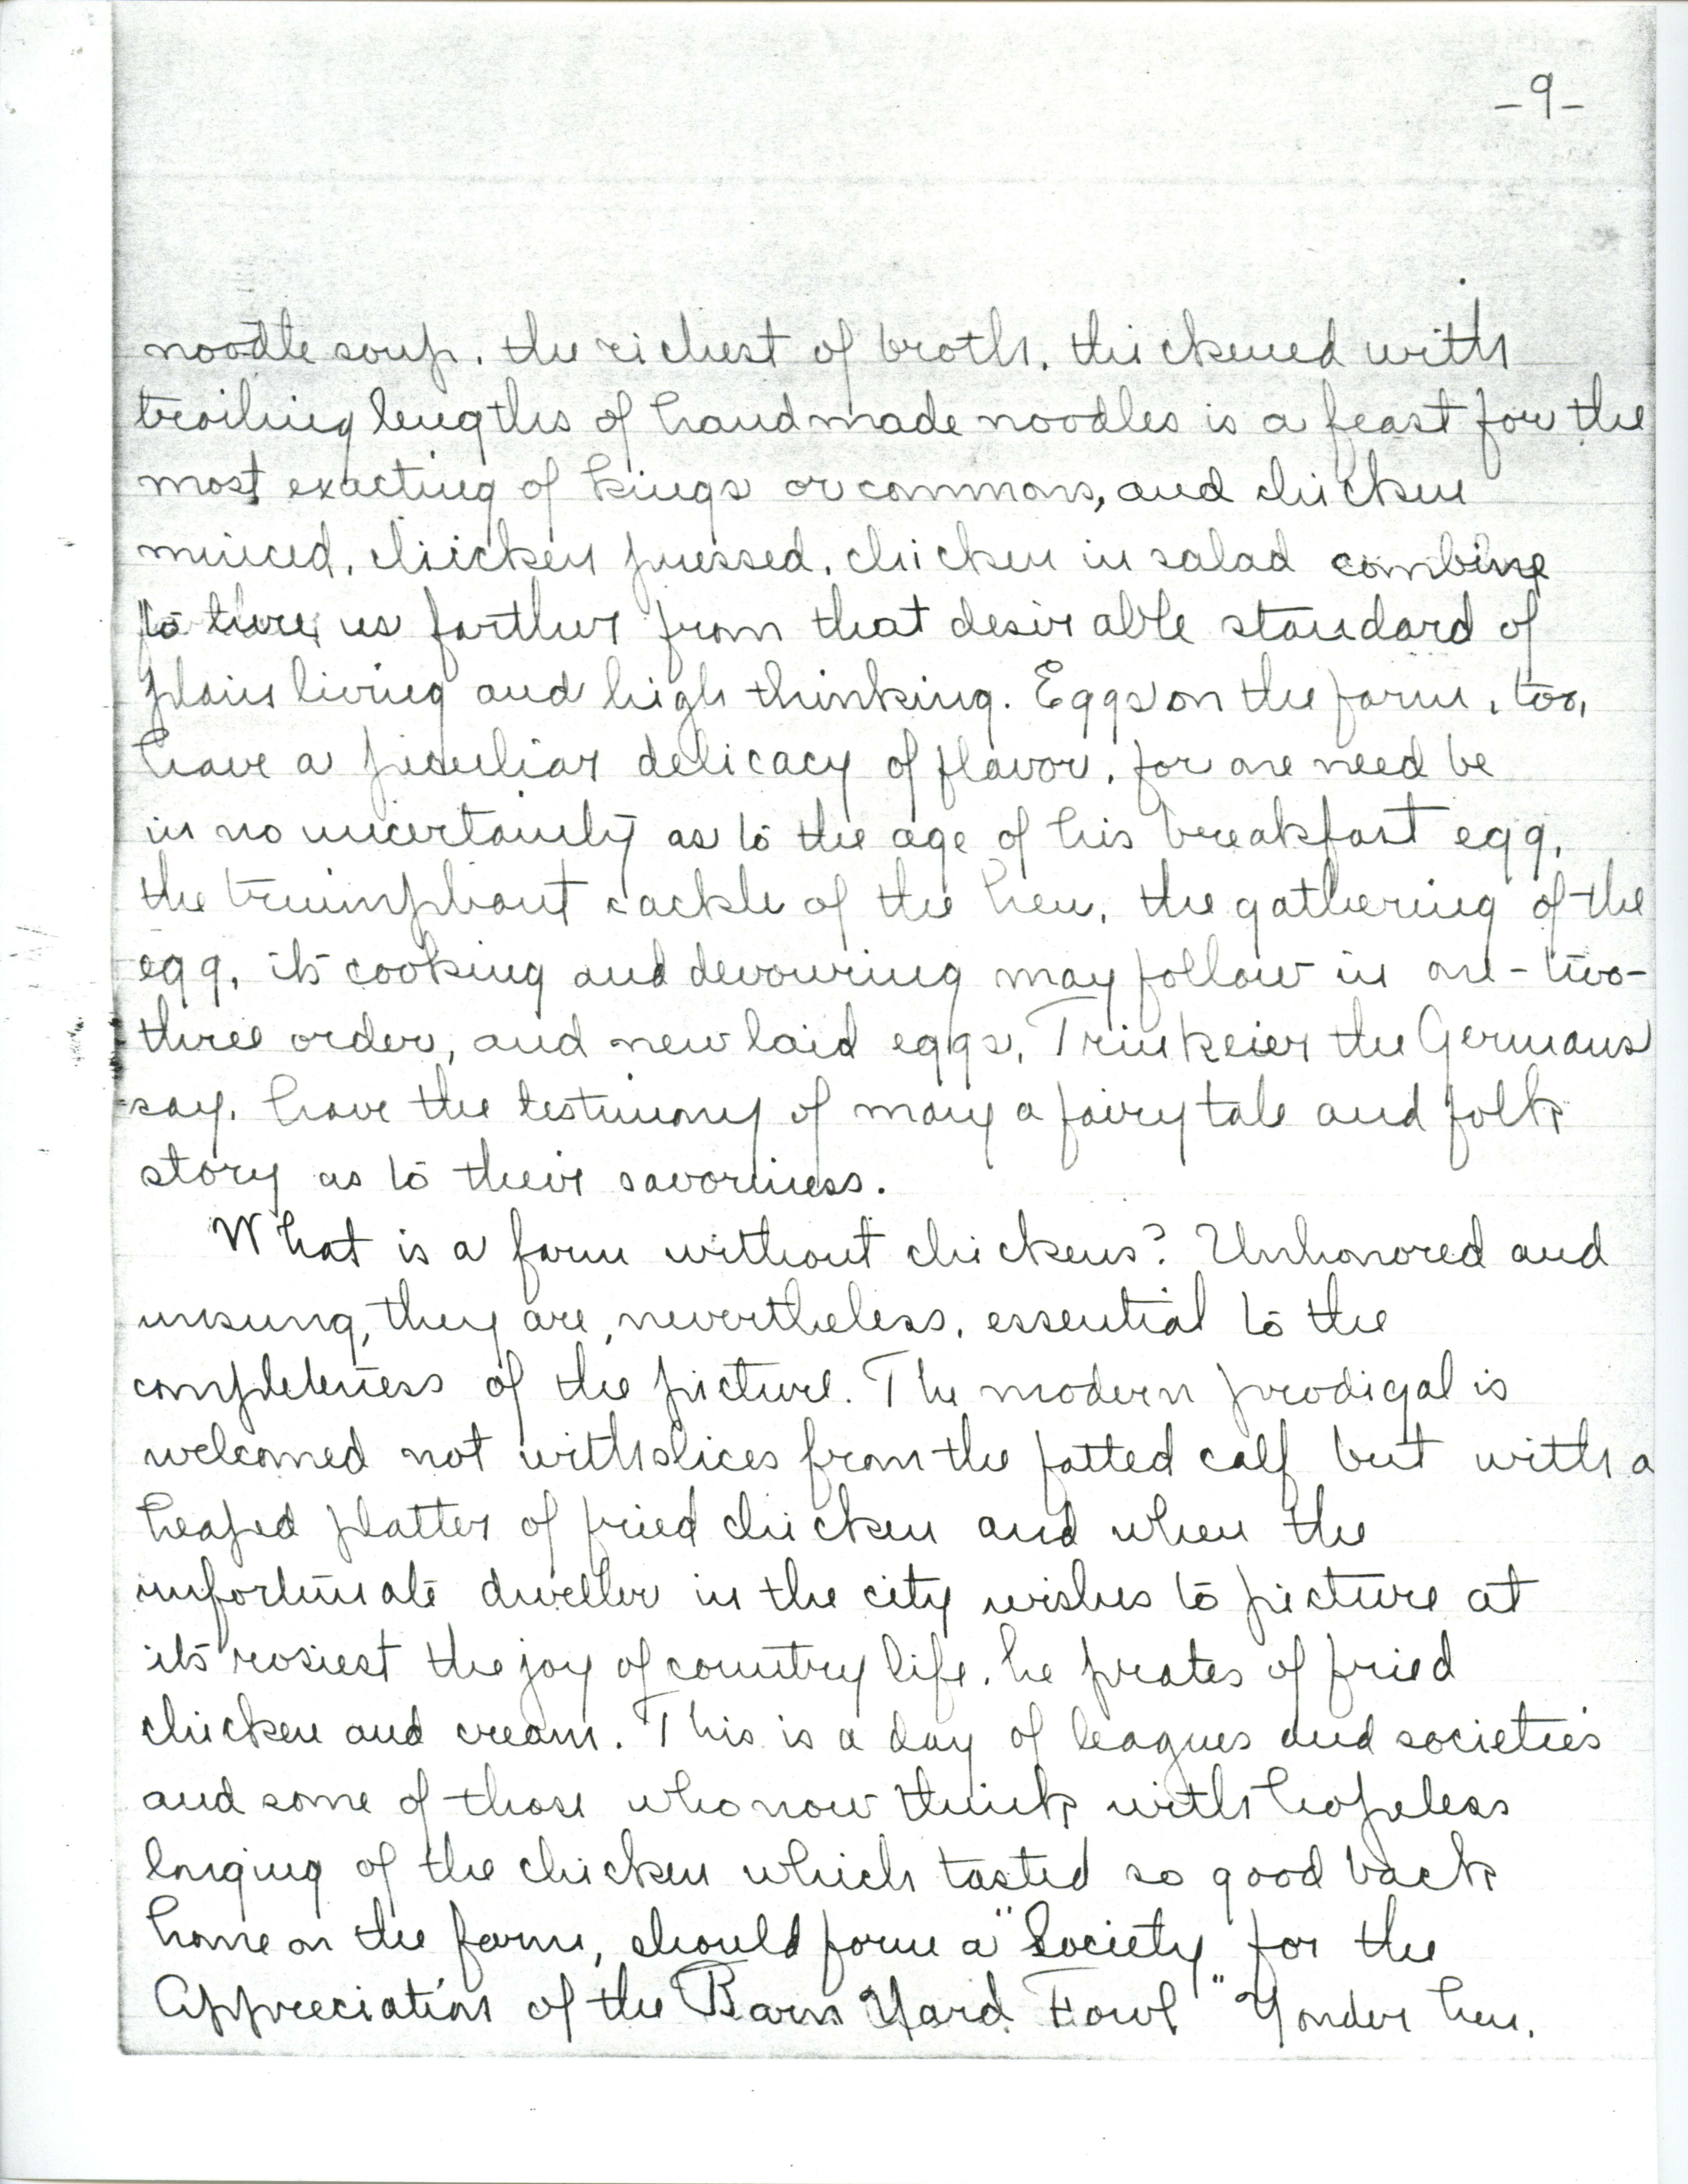 -9-
noodle soup, the richest of broth, thickened with
trailing lengths of handmade noodles is a feast for the
most exacting of kings or commons, and chicken
minced, chicken pressed, chicken in salad combine
to lure us farther from that desirable standard of
plain living and high thinking. Eggs on the farm, too,
have a peculiar delicacy of flavor, for one need be
in no uncertainty as to the age of his breakfast egg,
the triumphant cackle of the hen, the gathering of the
egg, its cooking and devouring may follow in one-two-
three order, and new laid eggs, Trinkeier the Germans
say, have the testimony of many a fairy tale and folk
story as to their savoriness.
What is a farm without chickens? Unhonored and
unsung, they are, nevertheless, essential to the
completeness of the picture. The modern prodigal is
welcomed not with slices from the fatted calf but with a
heaped platter of fried chicken and when the
unfortunate dweller in the city wishes to picture at
its rosiest the joy of country life, he prates of fried
chicken and cream. This is a day of leagues and societies
and some of those who now think with hopeless
longing of the chicken which tasted so good back
home on the farm, should form a "Society for the
Appreciation of the Barn Yard Fowl." Yonder hen,